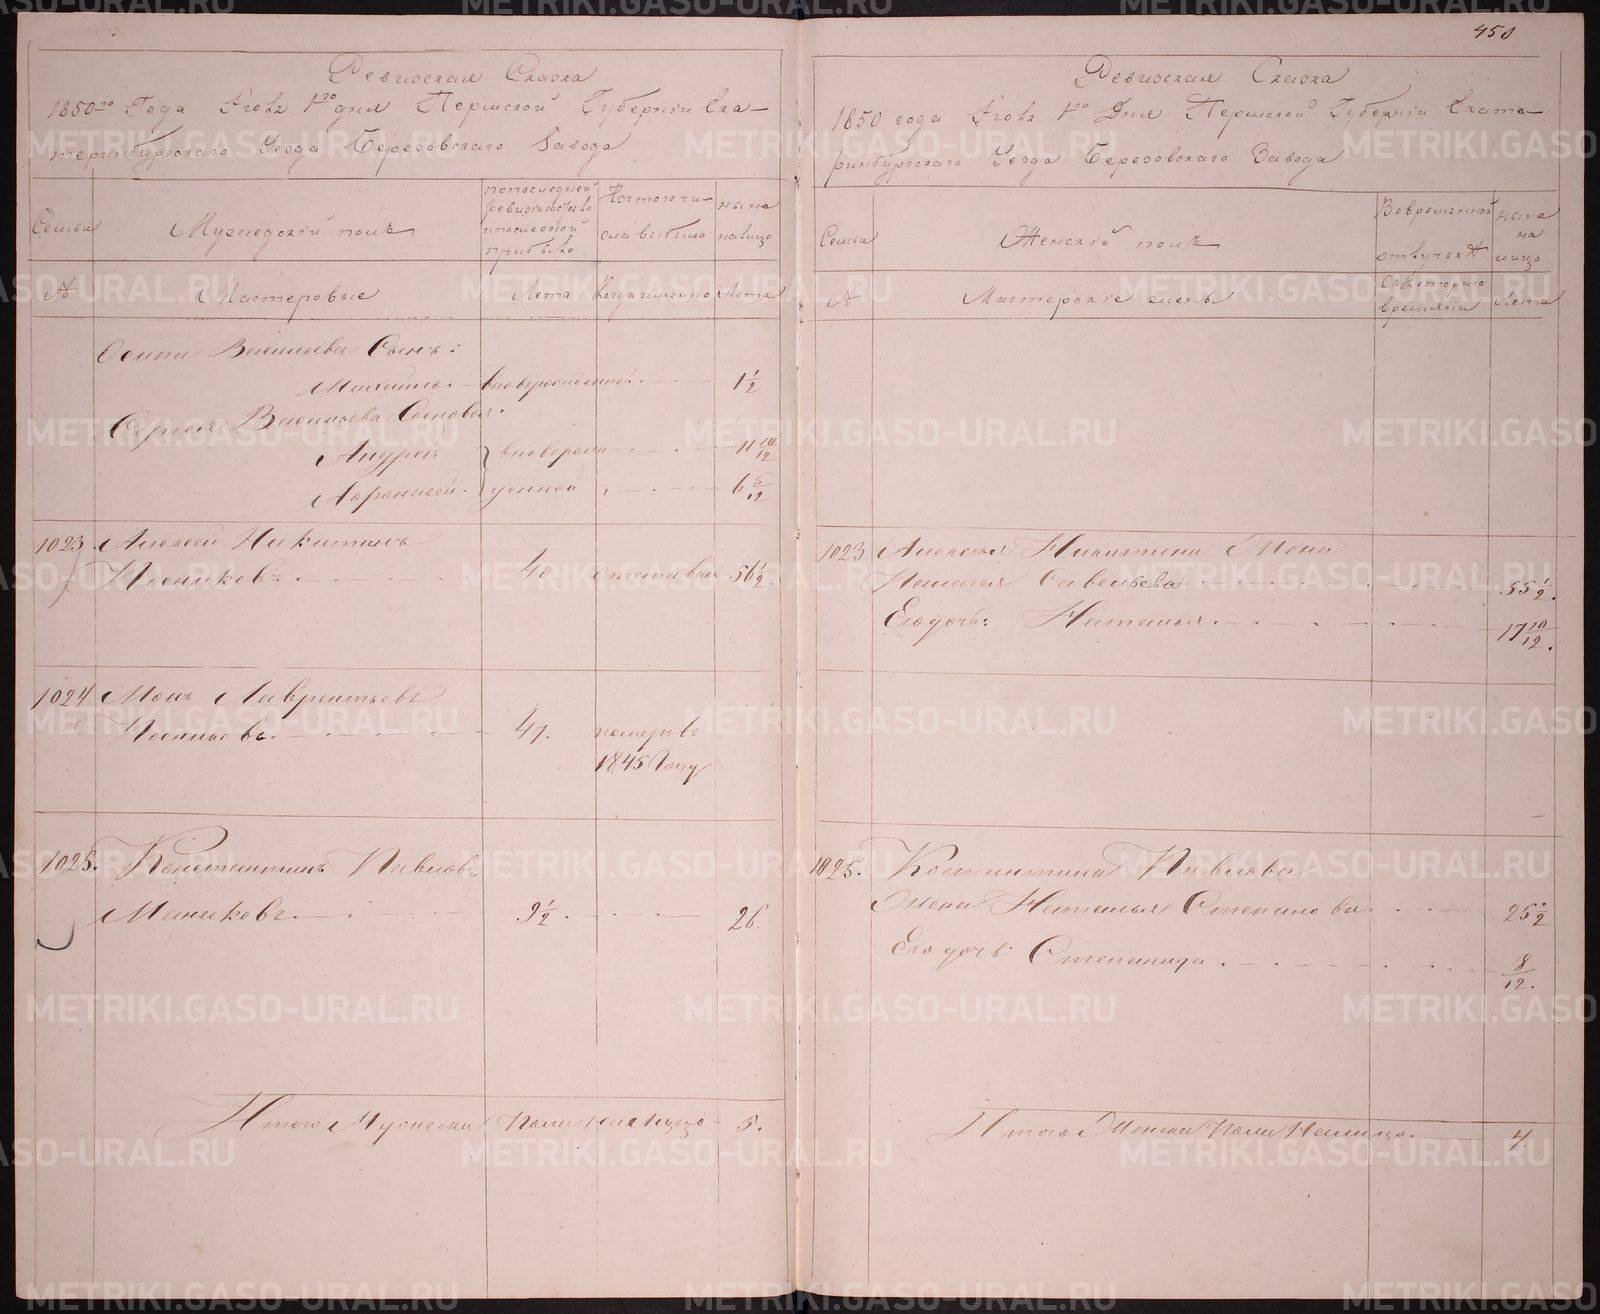 450
Ревизская Сказка
1850го Года дня Пермской Губернiи Ека-
теринбургского Уезда Березовского Завода
Семьи
Мужескiй полъ
по последней
ревизiи состояло
и после оной
прибыло
Изъ того чи-
сла выбыло
ныне
на лицо
№
Мастеровые
Лета
когда именно
Лета
Осипа Васильева Сынъ:
Михайло. вноворожденной 1 1/2
Сергея Васильева Сыновья.
Андрей } вноворож 11 10/12
Афонасей. } денной 6 5/12
1023. Алексей Никитинъ
40 отставной 56 1/2.
1024 Лаврентьевъ
47. померъ въ
1845 Году
1025. Константинъ Павловъ
Минаковъ. 9 1/2. 26.
Итого Мужеска Пола на Лицо 5.
Ревизская Сказка
1850 года Дня Пермской Губернiи Екате-
ринбургского Уезда Березовского Завода
Семьи
Женскiй полъ
Во временной
отлучке
ныне
на
лицо
№
Мастерскiе жены
Съ котораго
времяни
Лета
1023 Алексея Никитина Жена
Пелагея Савельева 55 1/2.
Его дочь: Наталья. 17 10/12.
1025. Костянтина Павлова
Жена Наталья Степанова 25 1/2
Его дочь: Степанида. 8/12.
Итого Женска Пола На лицо. 4
METRIKI.GASO-URAL.RU